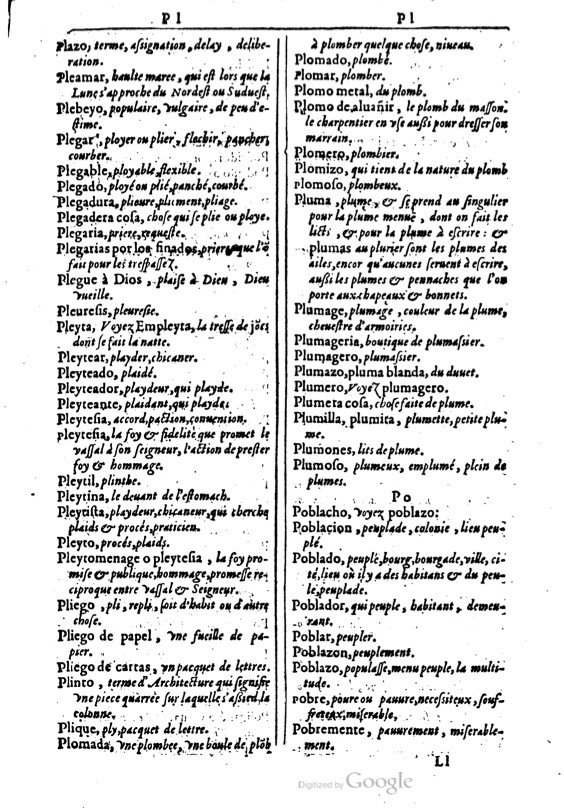 Pl
Plazo, terme, aſsignation, delay, delibe-
ration.
Pleamar, haulte maree, qui eſt lors que la
Lune s'approche du Nordeſt ou Suduest,
Plebeyo, populaire, vulgaire, de peu d'e-
ſtime.
Plegar, ployer ou plier, fleſchir, pancher,
courber.
Plegable, ployable, flexible.
Plegado, ployé ou plié, panché, courbé.
Plegadura, plieure, pliment, pliage.
Plegadera coſa, choſe qui ſe plie ou ploye.
Plegaria, priere, requeſte.
Plegarias por los finados, prieres que l'ō
fait pour les treſpaſſez.
Plegue à Dios, plaiſe à Dieu, Dieu
vueille.
Pleureſis, pleureſie.
Pleyta, Voyez Empleyta, la treſſe de jōcs
dont ſe fait la natte.
Pleytear, playder, chicaner.
Pleyteado, plaidé.
Pleyteador, playdeur, qui playde.
Pleyteante, plaidant, qui playde.
Pleyteſia, accord, paction, convention.
pleyteſia, la foy & fidelité que promet le
vaſſal à ſon ſeigneur, l'action de preſter
foy & hommage.
Pleytil, plinthe.
Pleytina, le devant de l'eſtomach.
Pleytiſta, playdeur, chicaneur, qui cherche
plaids & procés, praticien.
Pleyto, procés, plaids.
Pleytomenage o pleyteſia, la foy pro-
miſe & publique, hommage, promeſſe re-
ciproque entre vaſſal & Seigneur.
Pliego, pli, repli, ſoit d'habit ou d'autre
choſe.
Pliego de papel, vne fueille de pa-
pier.
Pliego de cartas, vn pacquet de lettres.
Plinto, terme d'Architecture qui ſignifie
vne piece quarrée ſur laquelle s'aſsied la
colonne.
Plique, ply, pacquet de lettre.
Plomada, vne plombee, vne boule de plōb
Pl
à plomber quelque choſe, niueau.
Plomado, plombé.
Plomar, plomber.
Plomo metal, du plomb.
Plomo de aluañir, le plomb du maſſon.
le charpentier en vſe auſsi pour dreſſer ſon
marrain.
Plomero, plombier.
Plomizo, qui tient de la nature du plomb
plomoſo, plombeux.
Pluma, plume, & ſe prend au ſingulier
pour la plume menuë, dont on fait les
licts, & pour la plume à eſcrire: &
plumas au plurier ſont les plumes des
ailes, encor qu'aucunes ſeruent à eſcrire,
auſsi les plumes & pennaches que l'on
porte aux chapeaux & bonnets.
Plumage, plumage, couleur de la plume,
cheueſtre d'armoiries.
Plumageria, boutique de plumaſsier.
Plumagero, plumaſsier.
Plumazo, pluma blanda, du duuet.
Plumero, Voyez plumagero.
Plumera coſa, choſe faite de plume.
Plumilla, plumita, plumette, petite plu-
me.
Plumones, licts de plume.
Plumoſo, plumeux, emplumé, plein de
plumes.
Po
Poblacho, voyez poblazo:
Poblacion, peuplade, colonie, lieu peu-
plé.
Poblado, peuplé, bourg, bourgade, ville, ci-
té, lieu où il y a des habitans & du peu-
le, peuplade.
Poblador, qui peuple, habitant, demeu-
rant.
Poblar, peupler.
Poblazon, peuplement.
Poblazo, populaſſe, menu peuple, la multi-
tude.
Pobre, poure ou pauure, neceſsiteux, ſouf-
freteux, miſerable,
Pobremente, pauurement, miſerable-
ment.
Ll
Digitized by Google